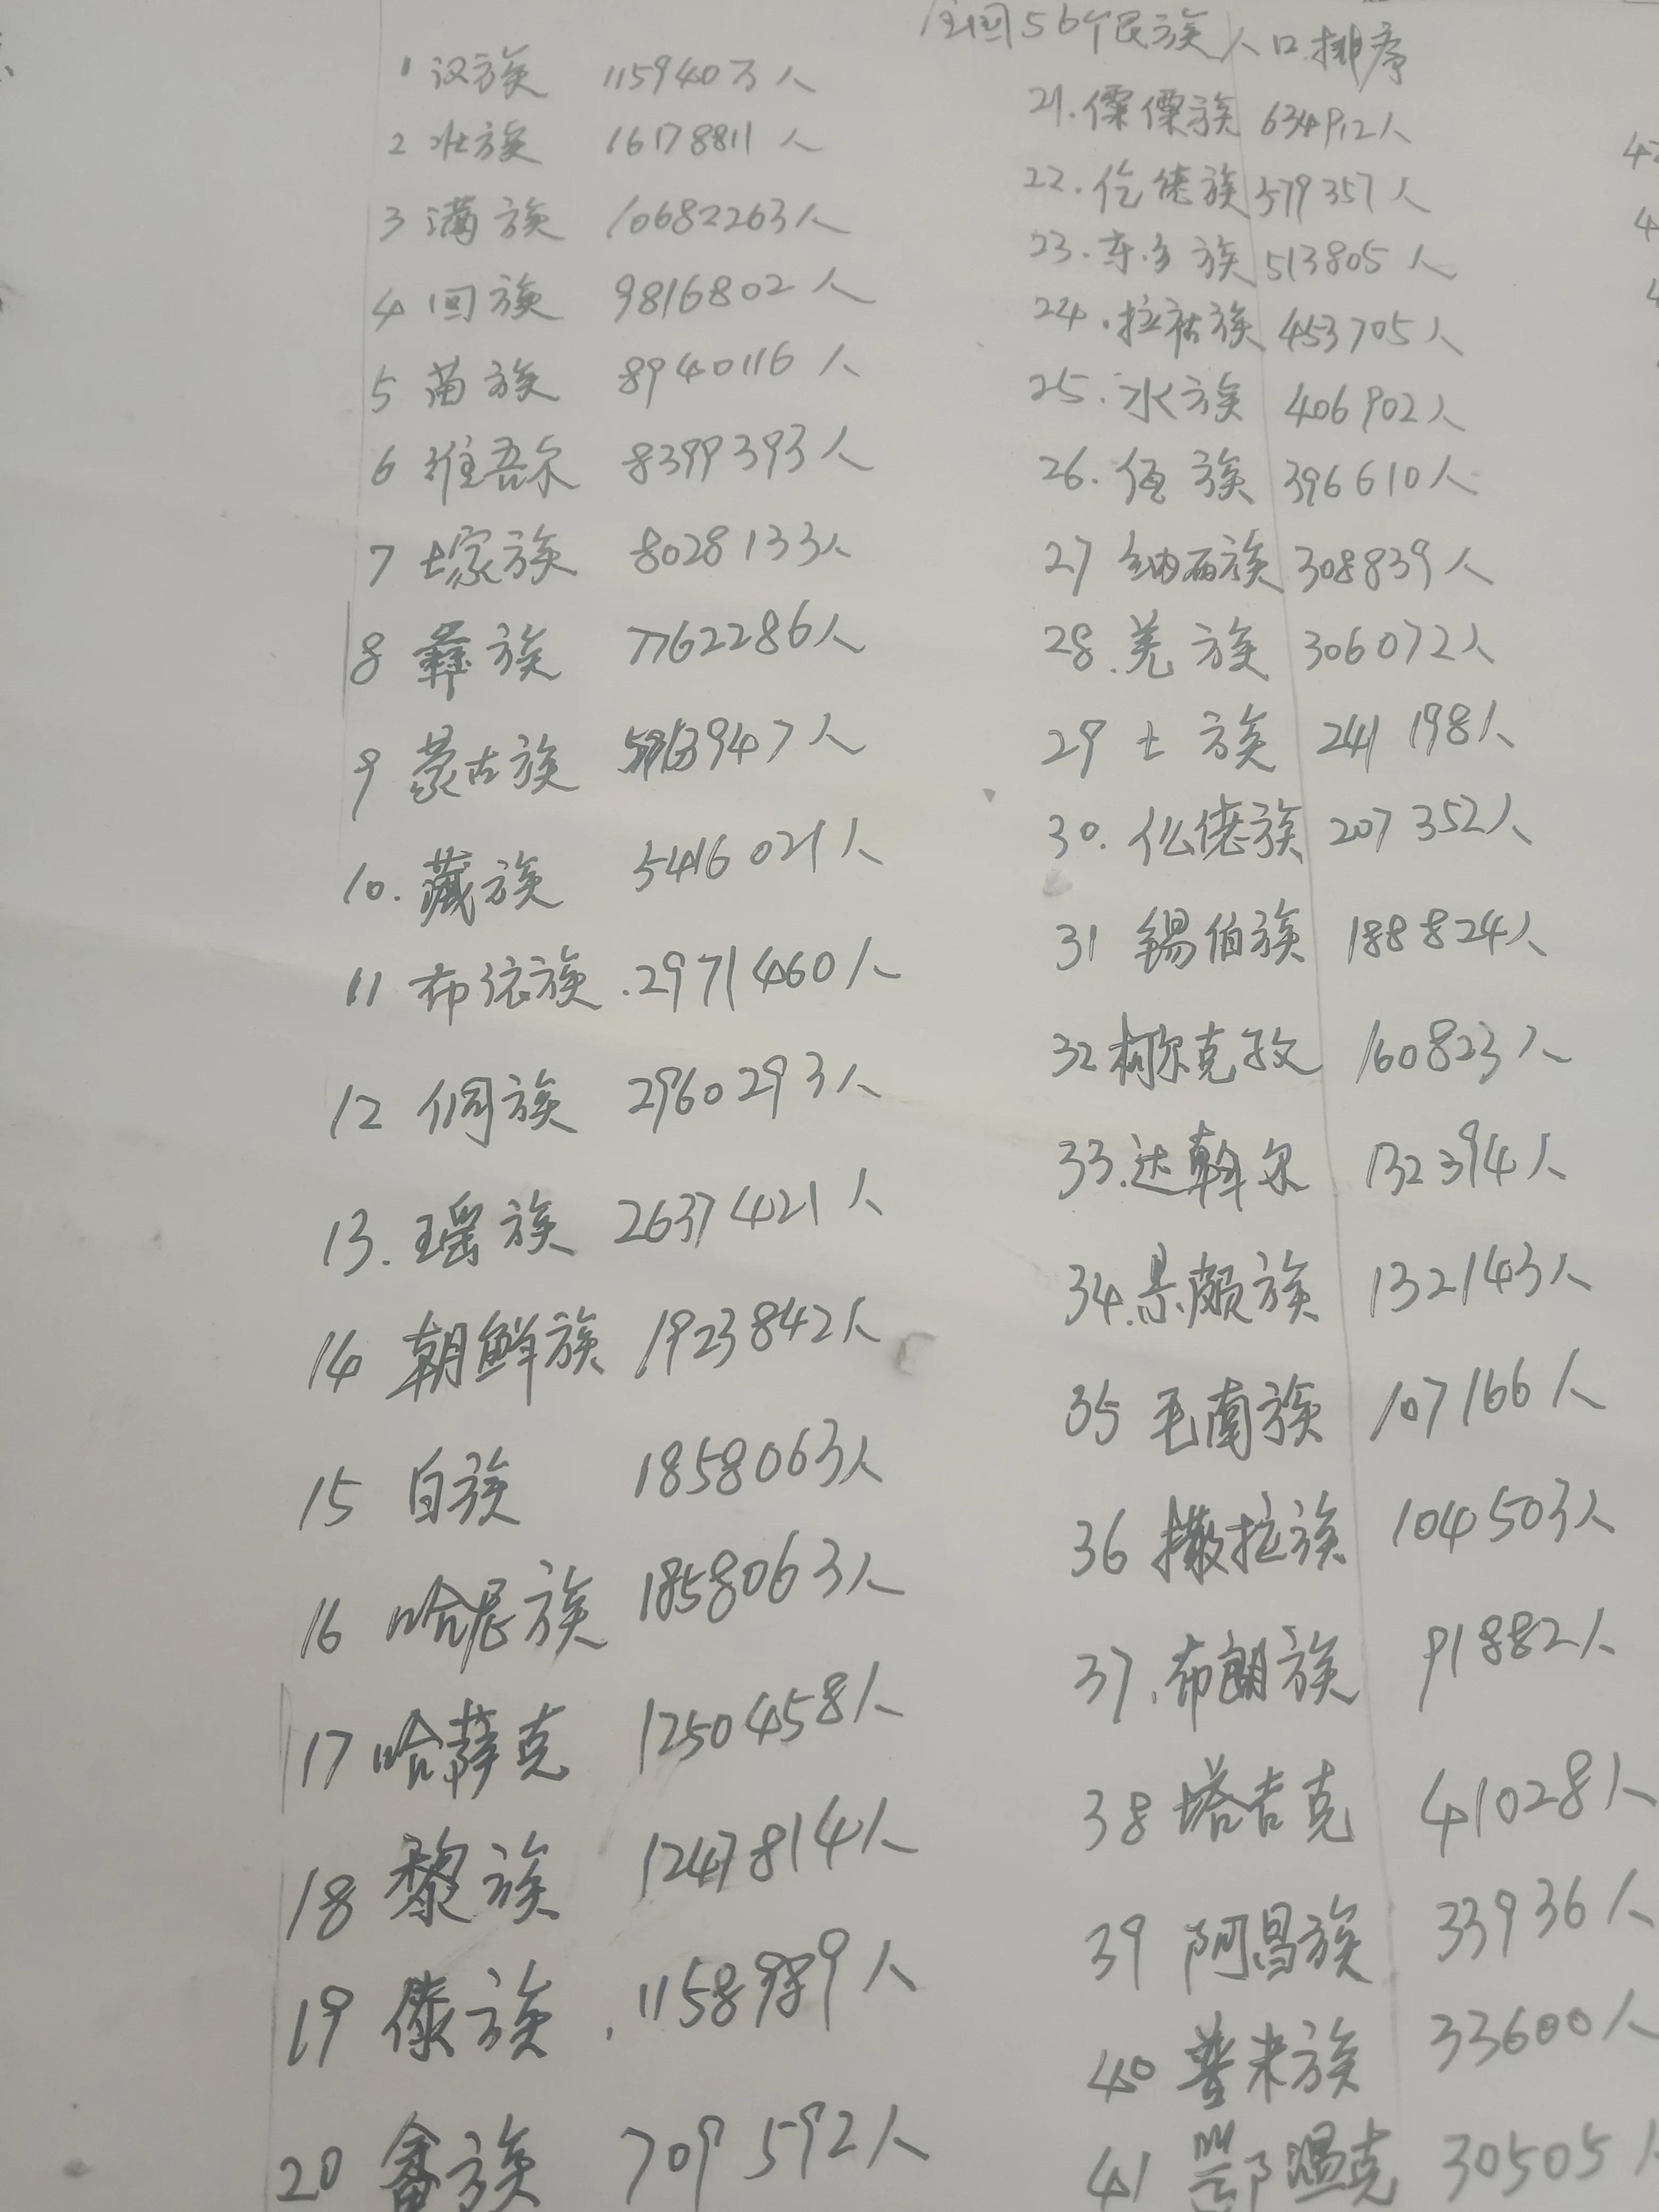 全国56个民族人口排序
1 汉族 115940万人
2 壮族 16178811人
3 满族 10682263人
4 回族 9816802人
5 苗族 8940116人
6 维吾尔 8399393人
7 土家族 8028133人
8 彝族 7762286人
9 蒙古族 5813947人
10. 藏族 5416021人
11 布依族 .2971460人
12 侗族 2960293人
13. 瑶族 2637421人
14 朝鲜族 1923842人
15 白族 1858063人
16 哈尼族 1858063人
17 哈萨克 1250458人
18 黎族 1247814人
19 傣族 .1158989人
20 畲族 709592人
21. 傈僳族 634912人
22. 仡佬族 579357人
23. 东乡族 513805人
24. 拉祜族 453705人
25. 水族 406902人
26. 佤族 396610人
27 纳西族 308839人
28. 羌族 306072人
29 土族 241198人
30. 仫佬族 207352人
31 锡伯族 188824人
32 柯尔克孜 160823人
33. 达斡尔 132394人
34. 景颇族 132143人
35 毛南族 107166人
36 撒拉族 104503人
37. 布朗族 91882人
38 塔吉克 41028人
39 阿昌族 33936人
40 普米族 33600人
41 鄂温克 30505人